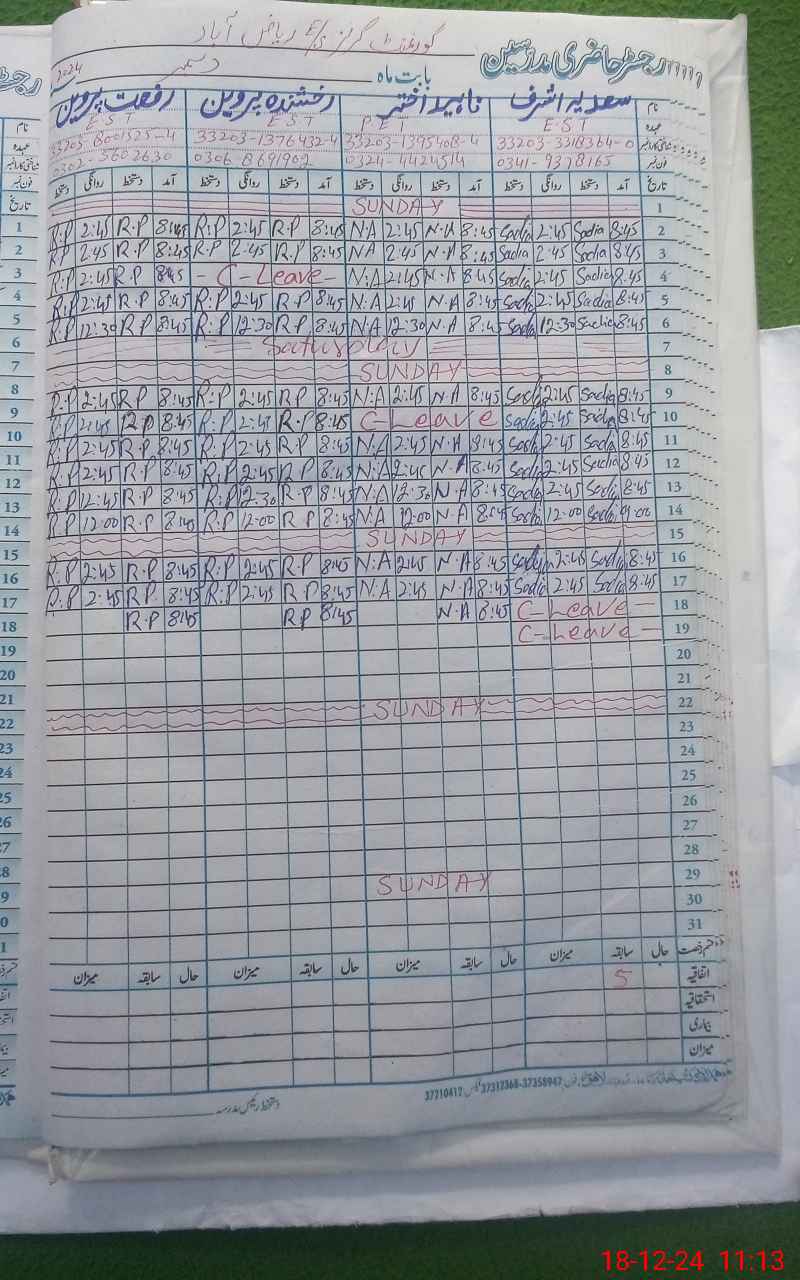 رجسٹر حاضری مدرسین
گورنمنٹ گرلز E/S ریاض آباد
بابت ماہ دسمبر 2024
نام سعدیہ اشرف ناہید اختر رخشندہ پروین رفعت پروین
عہدہ E.S.T P E T E S T E S T
33203-3318364-0 33203-1395408-4 33203-1376432-4 33203-8001525-4
فون نمبر 0341-9378165 0324-4424514 0306-8691902 0302-5602630
تاریخ آمد دستخط روانگی دستخط آمد دستخط روانگی دستخط آمد دستخط روانگی دستخط آمد دستخط روانگی دستخط
1 SUNDAY
2 8:45 Sadia 2:45 Sadia 8:45 N.A 2:45 N.A 8:45 R.P 2:45 R.P 8:45 R.P 2:45 R.P
3 8:45 Sadia 2:45 Sadia 8:45 N.A 2:45 NA 8:45 R.P 2:45 R.P 8:45 R.P 2:45 R.P
4 8:45 Sadia 2:45 Sadia 8:45 N.A 2:45 N.A - C-Leave - 8:45 R.P 2:45 R.P
5 8:45 Sadia 2:45 Sadia 8:45 N.A 2:45 N.A 8:45 R.P 2:45 R.P 8:45 R.P 2:45 R.P
6 8:45 Sadia 12:30 Sadia 8:45 N.A 12:30 NA 8:45 R.P 12:30 R.P 8:45 R.P 12:30 R.P
7 Saturday
8 SUNDAY
9 8:45 Sadia 2:45 Sadia 8:45 N.A 2:45 N.A 8:45 R.P 2:45 R.P 8:45 R.P 2:45 R.P
10 8:45 Sadia 2:45 Sadia C-Leave 8:45 R.P 2:45 R.P 8:45 R.P 2:45 R.P
11 8:45 Sadia 2:45 Sadia 8:45 N.A 2:45 N.A 8:45 R.P 2:45 R.P 8:45 R.P 2:45 R.P
12 8:45 Sadia 2:45 Sadia 8:45 N.A 2:45 N.A 8:45 R.P 2:45 R.P 8:45 R.P 2:45 R.P
13 8:45 Sadia 2:45 Sadia 8:45 N.A 12:30 N.A 8:45 R.P 12:30 R.P 8:45 R.P 12:45 R.P
14 9:00 Sadia 12:00 Sadia 8:45 N.A 12:00 N.A 8:45 R P 12:00 R.P 8:45 R.P 12:00 R.P
15 SUNDAY
16 8:45 Sadia 2:45 Sadia 8:45 N.A 2:45 N.A 8:45 R.P 2:45 R.P 8:45 R.P 2:45 R.P
17 8:45 Sadia 2:45 Sadia 8:45 N.A 2:45 N.A 8:45 RP 2:45 R.P 8:45 R.P 2:45 R.P
18 C-Leave - 8:45 N.A 8:45 RP 8:45 R.P
19 C-Leave -
20
21
22 SUNDAY
23
24
25
26
27
28
29 SUNDAY
30
31
حال سابقہ میزان حال سابقہ میزان حال سابقہ میزان حال سابقہ میزان
اتفاقیہ 5
استحقاقیہ
بیماری
میزان
37312368-37358947 37210417
دستخط رئیس مدرسہ
18-12-24 11:13